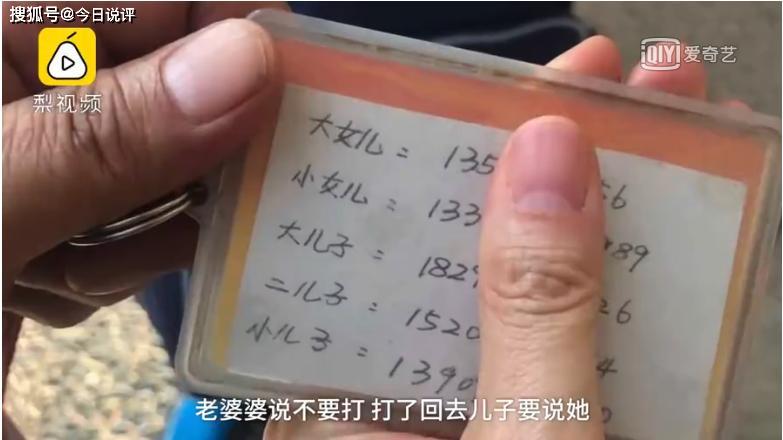 搜狐号@今日说评
梨视频
iQIYI 爱奇艺
大女儿 = 135 56
小女儿 = 133 989
大儿子 = 1829 26
二儿子 = 1520 4
小儿子 = 1390 0
老婆婆说不要打 打了回去儿子要说她